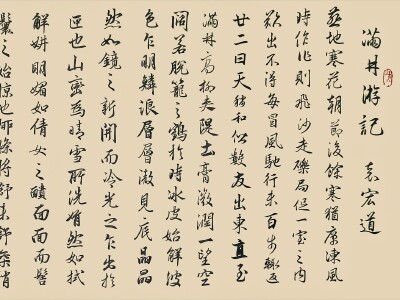 滿井游記 袁宏道
燕地寒花朝節後餘寒猶厲凍風
時作作則飛沙走礫局促一室之内
欲出不得每冒風馳行未百步輒返
廿二日天稍和偕数友出東直至
滿井高柳夾堤土膏微潤一望空
闊若脱籠之鵠於時冰皮始解波
色乍明鱗浪層層澈見底晶晶
然如鏡之新開而冷光之乍出於
匣也山巒為晴雪所洗娟然如拭
鮮妍明媚如倩女之靧面面而髻
鬟之始掠也柳條將舒未舒柔梢